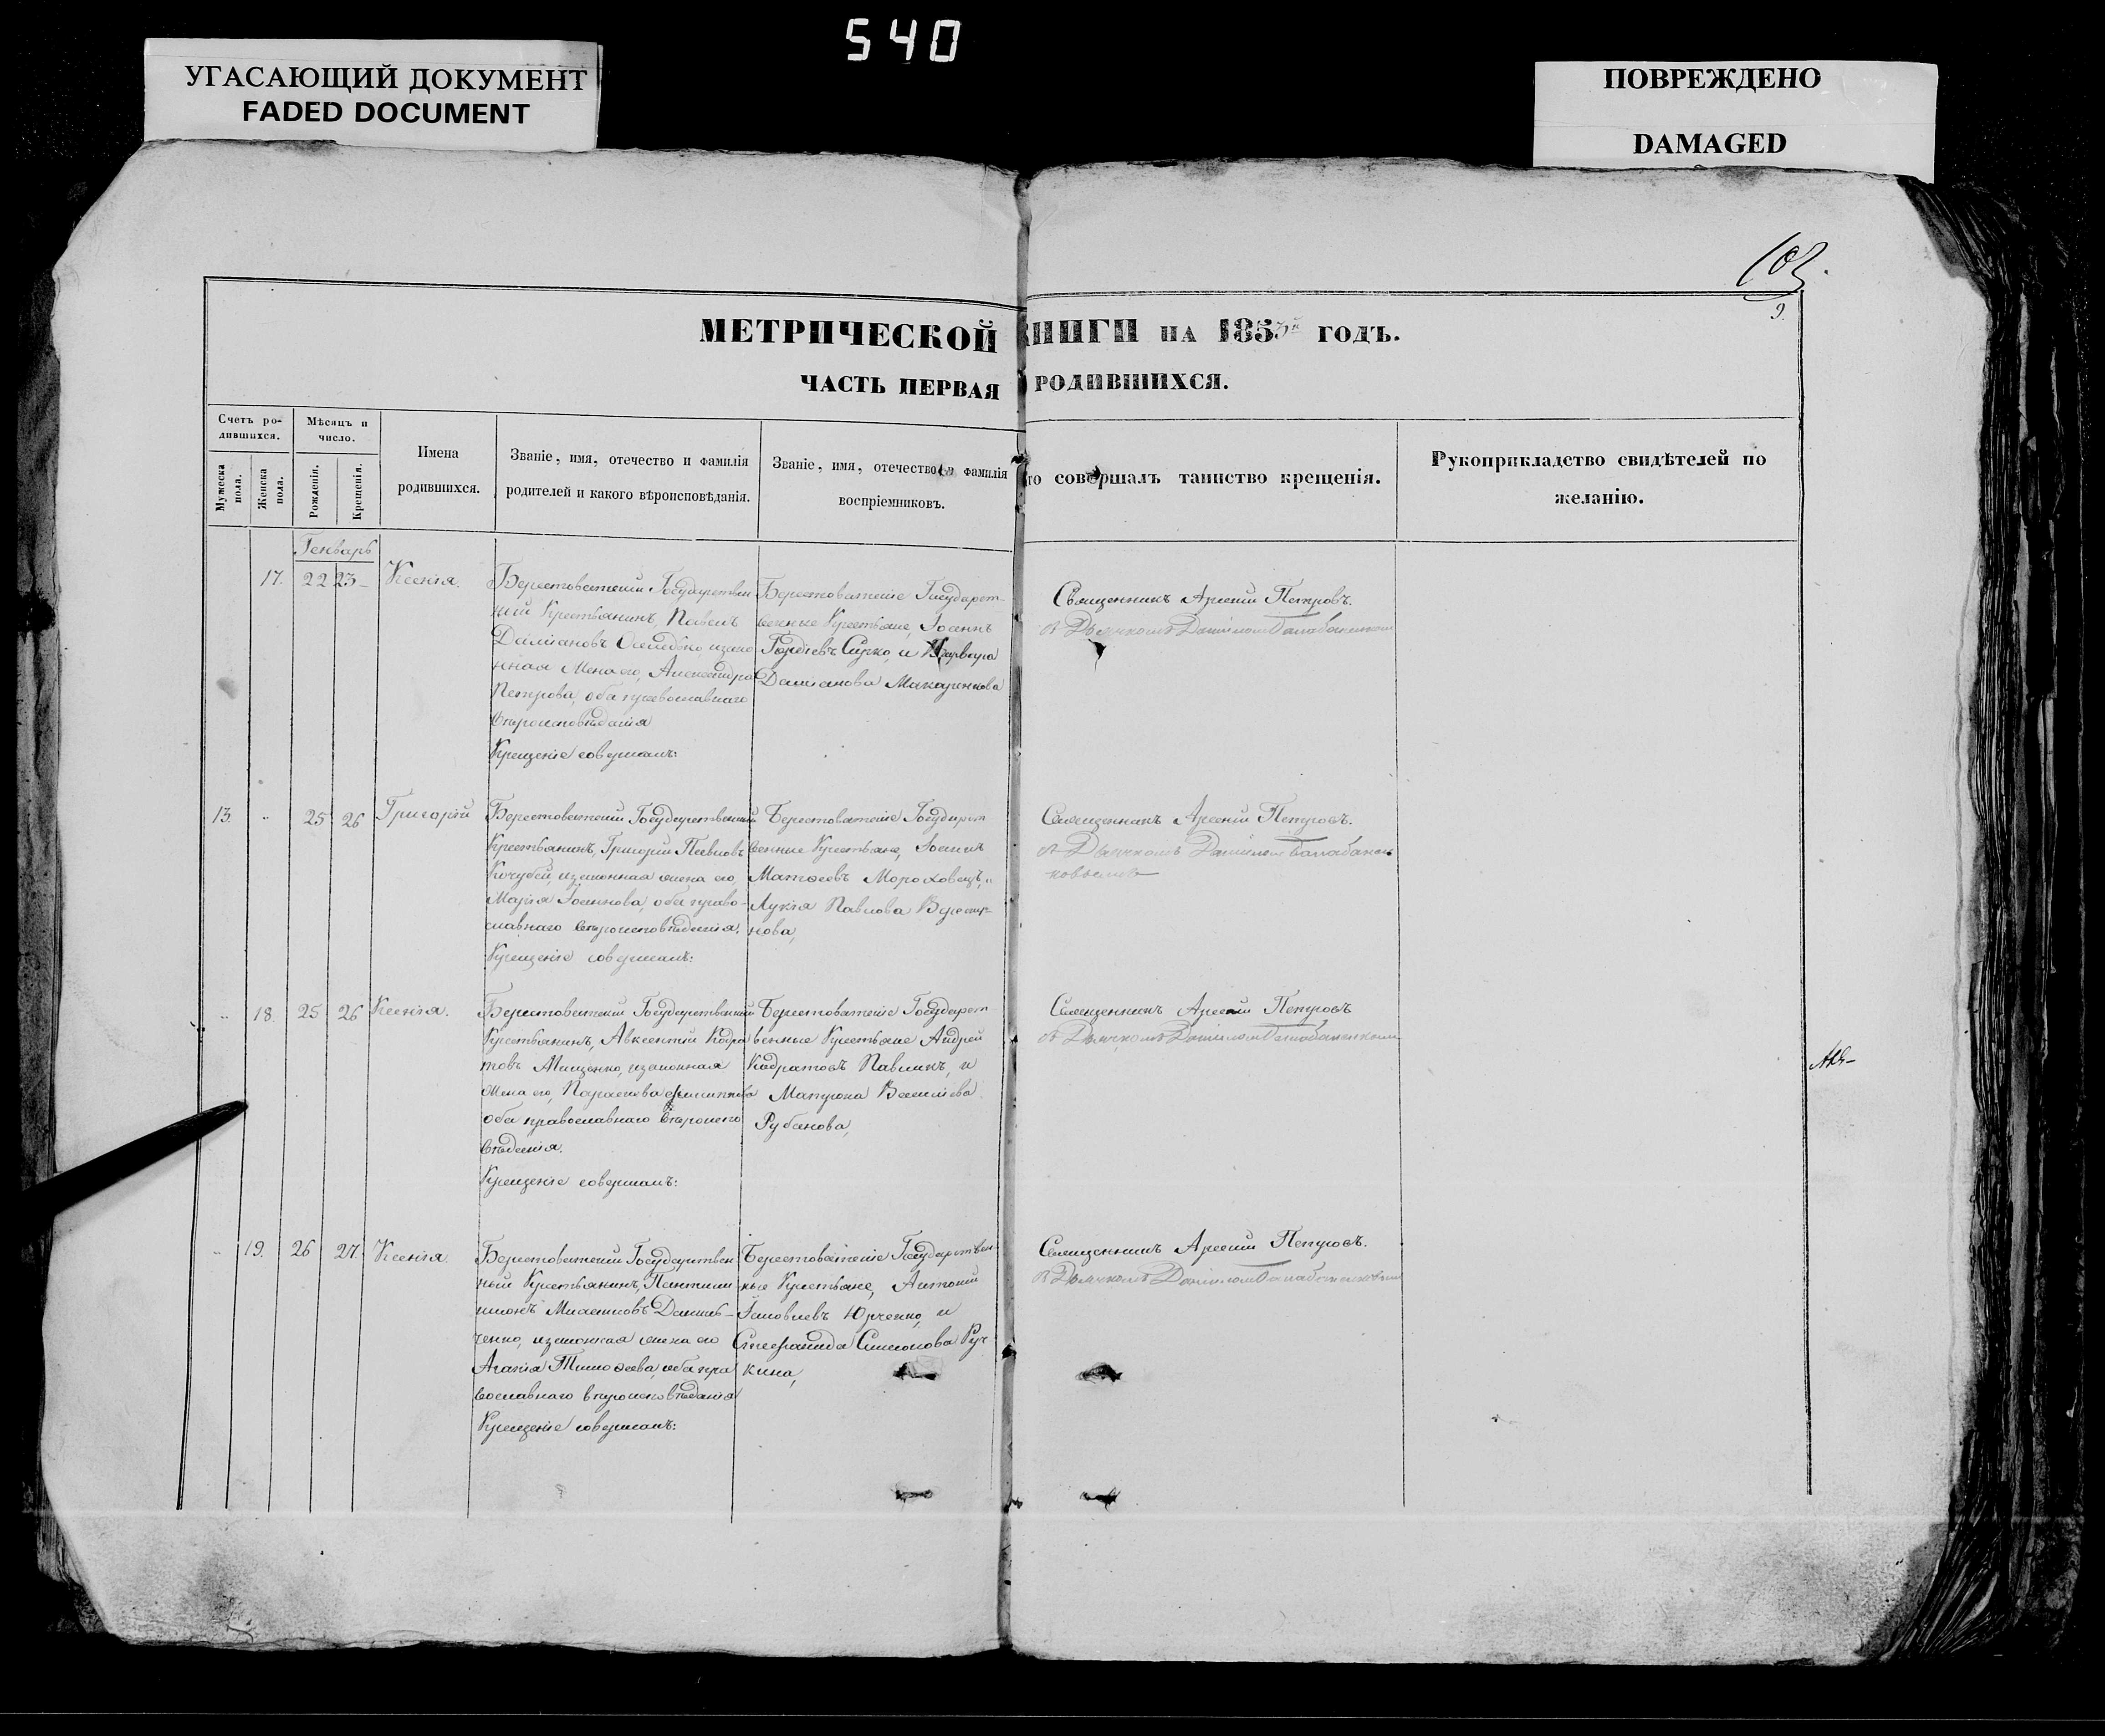 540
УГАСАЮЩИЙ ДОКУМЕНТ
FADED DOCUMENT
ПОВРЕЖДЕНО
DAMAGED
103.
9.
МЕТРИЧЕСКОЙ КНИГИ НА 1853й ГОДЪ.
ЧАСТЬ ПЕРВАЯ О РОДИВШИХСЯ.
Счетъ ро-
дившихся.
Мужеска пола.
Женска пола.
Мѣсяцъ и
число.
Рожденія.
Крещенія.
Имена
родившихся.
Званіе, имя, отечество и фамилія
родителей и какого вѣроисповѣданія.
Званіе, имя, отечество и фамилія
воспріемниковъ.
то совершалъ таинство крещенія.
Рукоприкладство свидѣтелей по
желанію.
Генварь
17. 22 23 Ксенія.
Берестовеньскій Государствен
ный Крестьянинъ, Павелъ
Даміановъ изакон
ная Жена его, Александра
Петрова, оба православнаго
вѣроисповѣданія
Крещеніе совершалъ:
Берестовенскіе Государст-
венные Крестьяне, Іоаннъ
Гордіевъ Сирко, и Варвара
Даміанова Макаренкова
Священникъ Арсеній Петровъ.
съ Дьячкомъ Даніиломъ Балабаненком
13. " 25 26 Григорій
Берестовенскій Государственный
Крестьянинъ, Григорій Павловъ
Кочубей, изаконная жена его,
Марія Іоаннова, оба право-
славнаго вѣроисповѣданія.
Крещеніе совершалъ:
Берестовенскіе Государст
венные Крестьяне, Іоаннъ
Матѳеевъ Мороховецъ, и
Лукія Павлова
нова,
Священникъ Арсеній Петровъ.
съ Дьячкомъ Даніиломъ Балабанен
ковымъ
" 18. 25 26 Ксенія.
Берестовенскій Государственный
Крестьянинъ, Авксентій Кодра
товъ Мищенко, изаконная
Жена его, Параскева Филиппова
оба православнаго вѣроиспо
вѣданія.
Крещеніе совершалъ:
Берестовенскіе Государст
венные Крестьяне Андрей
Кодратовъ Павликъ, и
Матрона Василіева
Рубанова,
Священникъ Арсеній Петровъ
съ Дьячкомъ Даніиломъ Балабаненком
" 19. 26 27. Ксенія.
Берестовенскій Государствен
ный Крестьянинъ, Пантелеи
монъ Михаиловъ Даниль-
ченко, изаконная жена его
Агапія Тимоѳеева, оба пра
вославнаго вѣроисповѣданія
Крещеніе совершалъ:
Берестовенскіе Государствен
ные Крестьяне, Антоній
Іаковлевъ Юрченко, и
Стефанида Симонова Руч
кина,
Священникъ Арсеній Петровъ.
съ Дьячкомъ Даніиломъ Балабаненковым